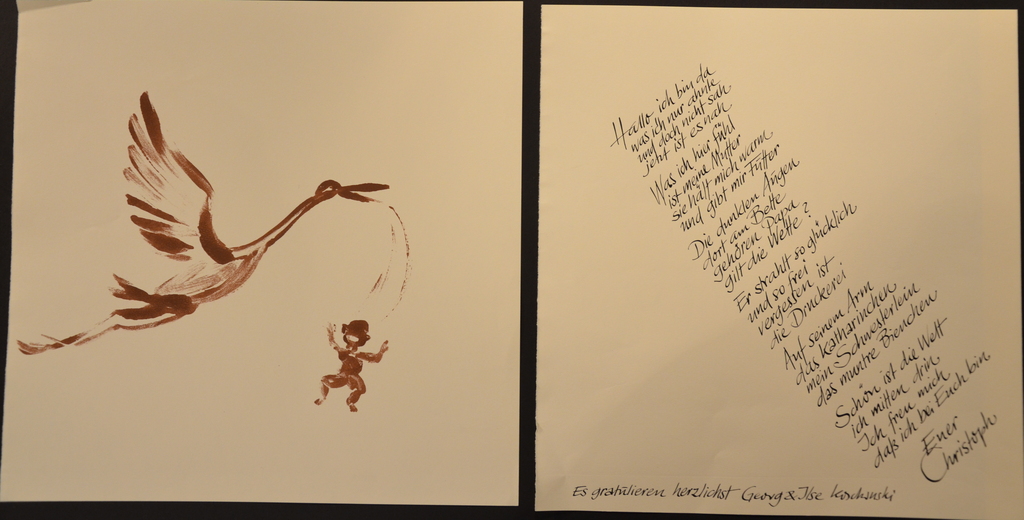 Hallo, ich bin da
was ich nur ahnte
und doch nicht sah
jetzt ist es nah
Was ich hier fühl
ist meine Mutter
sie hält mich warm
und gibt mir Futter
Die dunklen Augen
dort am Bette
gehören Papa
gilt die Wette?
Er strahlt so glücklich
und so frei
vergessen ist
die Druckerei
Auf seinem Arm
das Katharinchen
mein Schwesterlein
das muntre Bienchen
Schön ist die Welt
ich mitten drin
Ich freu mich
daß ich bei Euch bin
Euer
Christoph
Es gratulieren herzlichst Georg & Ilse